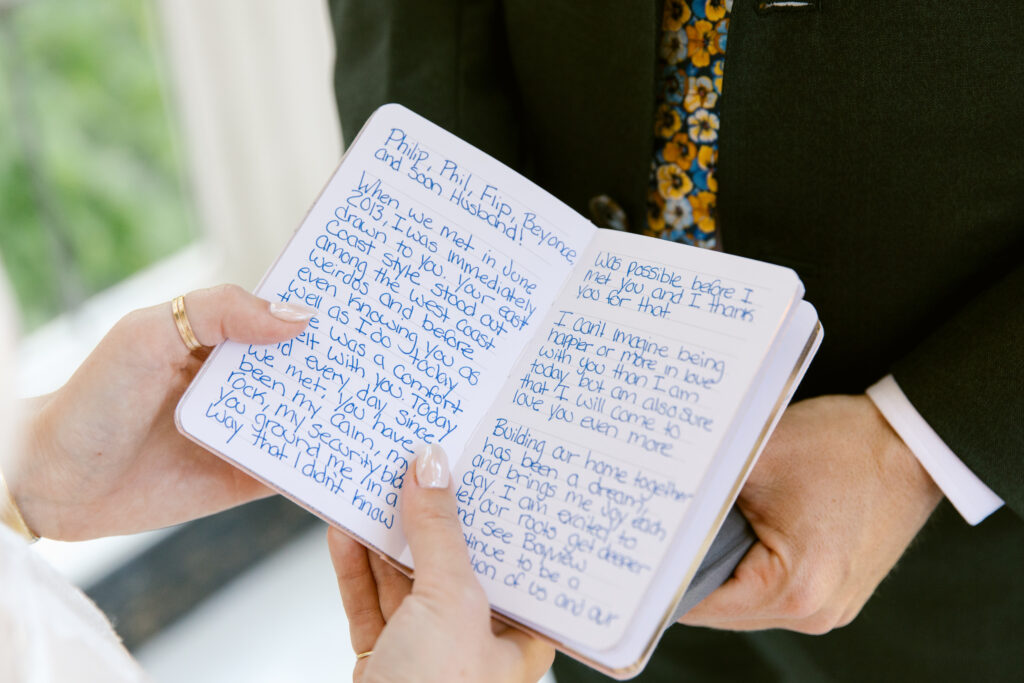 Philip, Phil, Flip, Beyonce,
and soon Husband!
When we met in June
2013, I was immediately
drawn to you. Your east
coast style stood out
among the west coast
weirdos and before
even knowing you as
well as I do today
felt was a comfort
with you. Today
and every day since
we met, you have
been my calm, my
rock, my security
you ground me in a
way that I didn't know
was possible before I
met you and I thank
you for that
I can't imagine being
happier or more in love
with you than I am
today, but I am also sure
that I will come to
love you even more
Building our home together
has been a dream,
and brings me joy each
day. I am excited to
let our roots get deeper
and see Bayview
continue to be a
of us and our